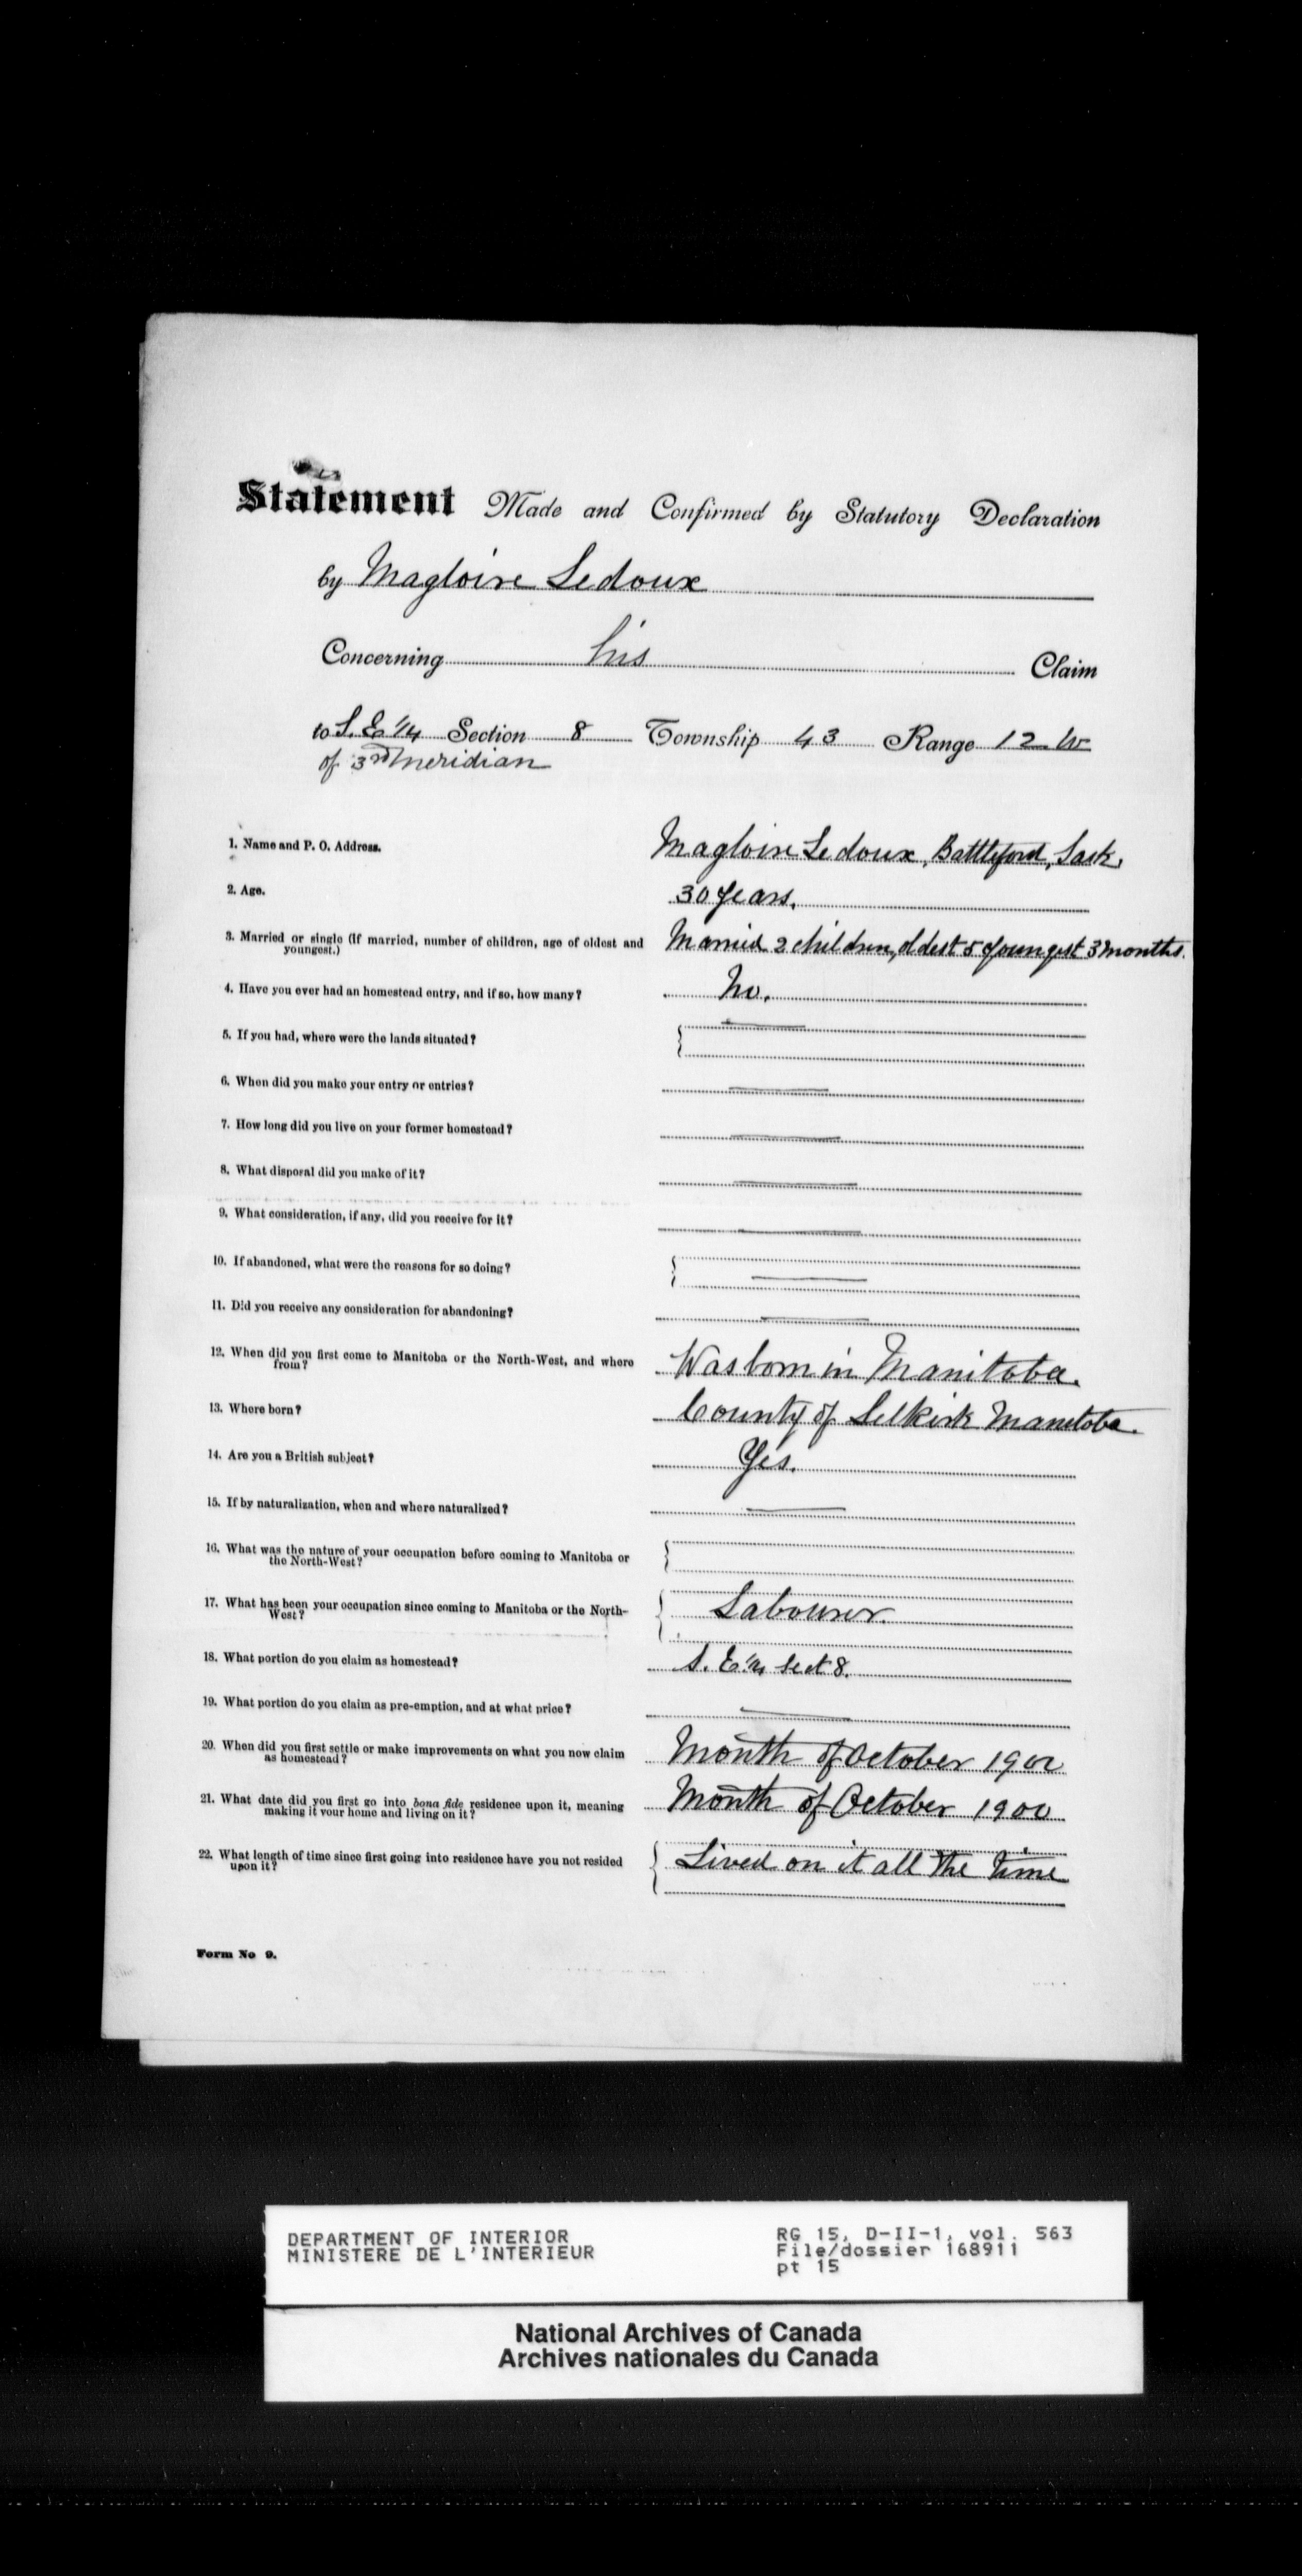 Statement Made and Confirmed by Statutory Declaration
by Magloire Ledoux
Concerning his Claim
to S. E 1/4 Section 8 Township 43 Range 12 W
of 3rd Meridian
1. Name and P. O. Address. Magloire Ledoux, Battleford, Sask.
2. Age. 30 years.
3. Married or single (If married, number of children, age of oldest and youngest.) Married 2 children, oldest 5 youngest 3 months.
4. Have you ever had an homestead entry, and if so, how many? No.
5. If you had, where were the lands situated?
6. When did you make your entry or entries?
7. How long did you live on your former homestead?
8. What disposal did you make of it?
9. What consideration, if any, did you receive for it?
10. If abandoned, what were the reasons for so doing?
11. Did you receive any consideration for abandoning?
12. When did you first come to Manitoba or the North-West, and where from? Was born in Manitoba.
13. Where born? County of Selkirk Manitoba.
14. Are you a British subject? Yes.
15. If by naturalization, when and where naturalized?
16. What was the nature of your occupation before coming to Manitoba or the North-West?
17. What has been your occupation since coming to Manitoba or the North-West? Labourer.
18. What portion do you claim as homestead? S. E 1/4 Sect 8.
19. What portion do you claim as pre-emption, and at what price?
20. When did you first settle or make improvements on what you now claim as homestead? Month of October
21. What date did you first go into bona fide residence upon it, meaning making it your home and living on it? Month of October 1900
22. What length of time since first going into residence have you not resided upon it? Lived on it all the time
Form No 9.
DEPARTMENT OF INTERIOR
MINISTERE DE L'INTERIEUR
RG 15, D-II-1, vol. 563
File/dossier 168911
pt 15
National Archives of Canada
Archives nationales du Canada